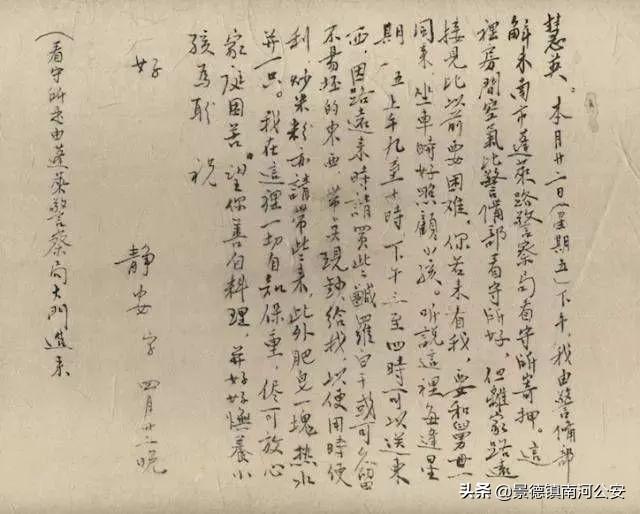 慧英。本月廿二日(星期五)下午，我由警備部
解來南市蓬萊路警察局看守所寄押。這
裡房間空氣比警備部看守所好，但離家路遠
接見比以前要困難，你若來看我，要和舅母一
同來，坐車時好照顧小孩。听說這裡每逢星
期一、五上午九至十時下午三至四時可以送東
西，因路遠來時請買些鹹羅白干或可久留
不易坯的東西，帶点現鈔給我以便用時便
利，炒米粉亦請帶些來，此外肥皂一塊熱水
并一只。我在這裡一切自知保重，侭可放心
家庭困苦。望你善自料理，并好好撫養小
孩為盼 祝
好。
靜安字 四月廿二晚
(看守所是由蓬萊警察局大門進來
头条 @景德镇南河公安